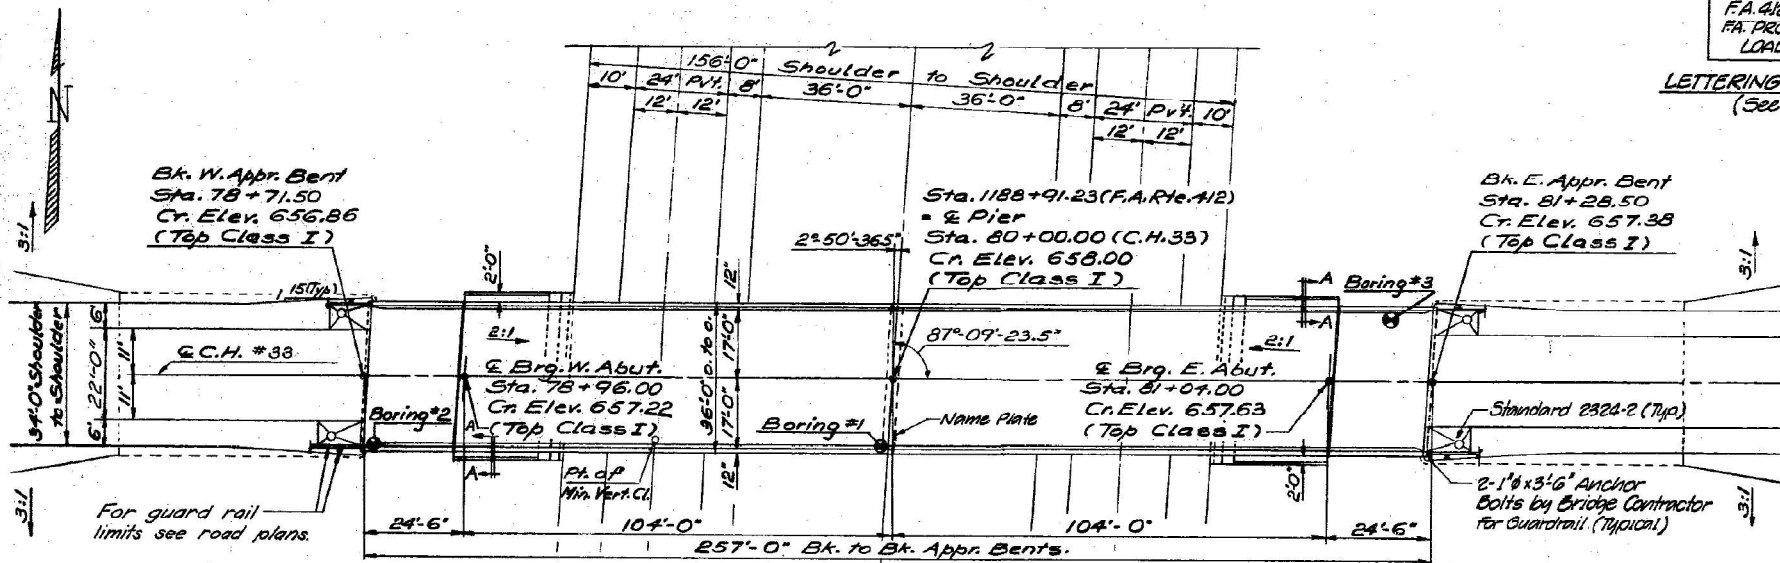 F.A. 412
F.A. PRO
LOAD
LETTERING
(See
N
156'-0" Shoulder to Shoulder
10'
24' Pvt.
8'
36'-0"
36'-0"
8'
24' Pvt.
10'
12'
12'
12'
12'
Bk. W. Appr. Bent
Sta. 78+71.50
Cr. Elev. 656.86
(Top Class I)
Sta. 1188+91.23 (F.A. Rte. 412)
= ℄ Pier
Sta. 80+00.00 (C.H. 33)
Cr. Elev. 658.00
(Top Class I)
2°-50'-36.5"
Bk. E. Appr. Bent
Sta. 81+28.50
Cr. Elev. 657.38
(Top Class I)
3:1
3:1
2'-0"
12"
15' (Typ.)
A
A
Boring #3
34'-0" Shoulder
to Shoulder
6'
22'-0"
6'
11'
11'
℄ C.H. #33
2:1
2:1
36'-0" o. to o.
17'-0"
17'-0"
87°-09'-23.5"
℄ Brg. W. Abut.
Sta. 78+96.00
Cr. Elev. 657.22
(Top Class I)
℄ Brg. E. Abut.
Sta. 81+04.00
Cr. Elev. 657.63
(Top Class I)
Boring #2
Boring #1
Name Plate
Standard 2324-2 (Typ)
A
A
Pt. of
Min. Vert. Cl.
12"
2'-0"
2-1"ϕ x 3'-6" Anchor
Bolts by Bridge Contractor
for Guardrail (Typical)
3:1
3:1
For guard rail
limits see road plans.
24'-6"
104'-0"
104'-0"
24'-6"
257'-0" Bk. to Bk. Appr. Bents.